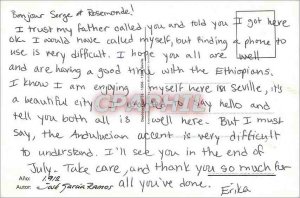 Bonjour Serge et Rosemonde!
I trust my father called you and told you I got here
ok. I would have called myself, but finding a phone to
use is very difficult. I hope you all are well
and are having a good time with the Ethiopians.
I know I am enjoying myself here in Seville, it's
a beautiful city say hello and
tell you both all is well here. But I must
say, the Andulucian accent is very difficult
to understand. I'll see you in the end of
July. Take care, and thank you so much for
all you've done.
Erika
Año: 1.912
Autor: José García Ramos
CPARAMA